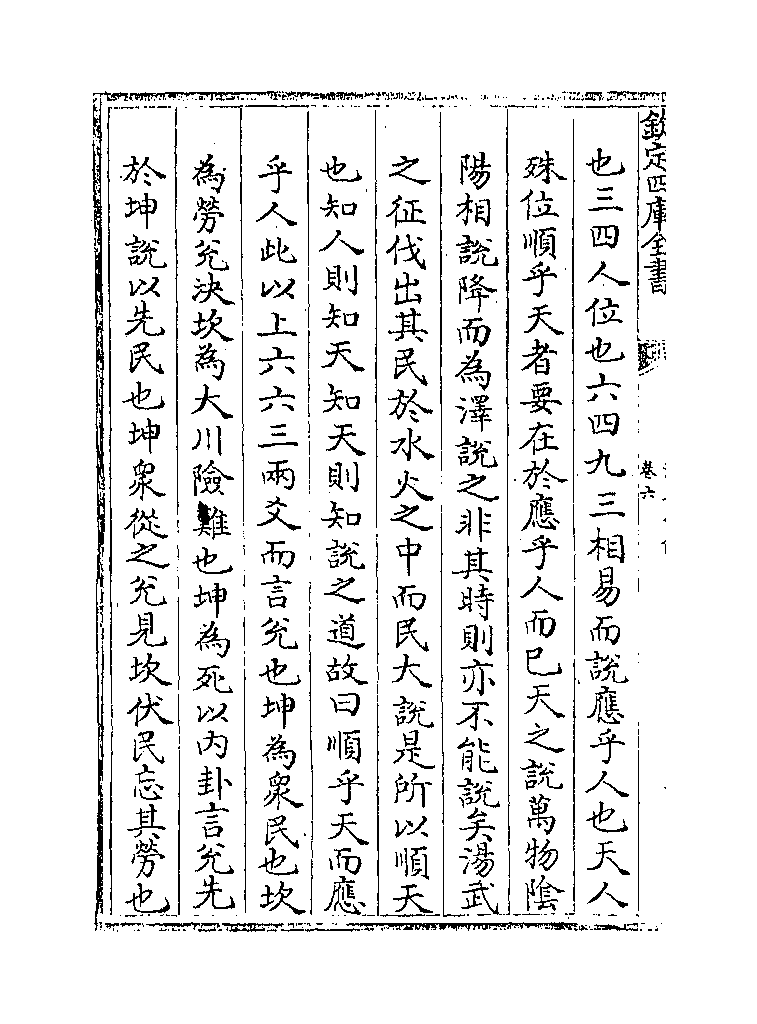 欽定四庫全書
卷六
也三四人位也六四九三相易而說應乎人也天人
殊位順乎天者要在於應乎人而已天之說萬物陰
陽相說降而為澤說之非其時則亦不能說矣湯武
之征伐出其民於水火之中而民大說是所以順天
也知人則知天知天則知說之道故曰順乎天而應
乎人此以上六六三兩爻而言兊也坤為衆民也坎
為勞兊決坎為大川險難也坤為死以内卦言兊先
於坤說以先民也坤衆從之兊見坎伏民忘其勞也